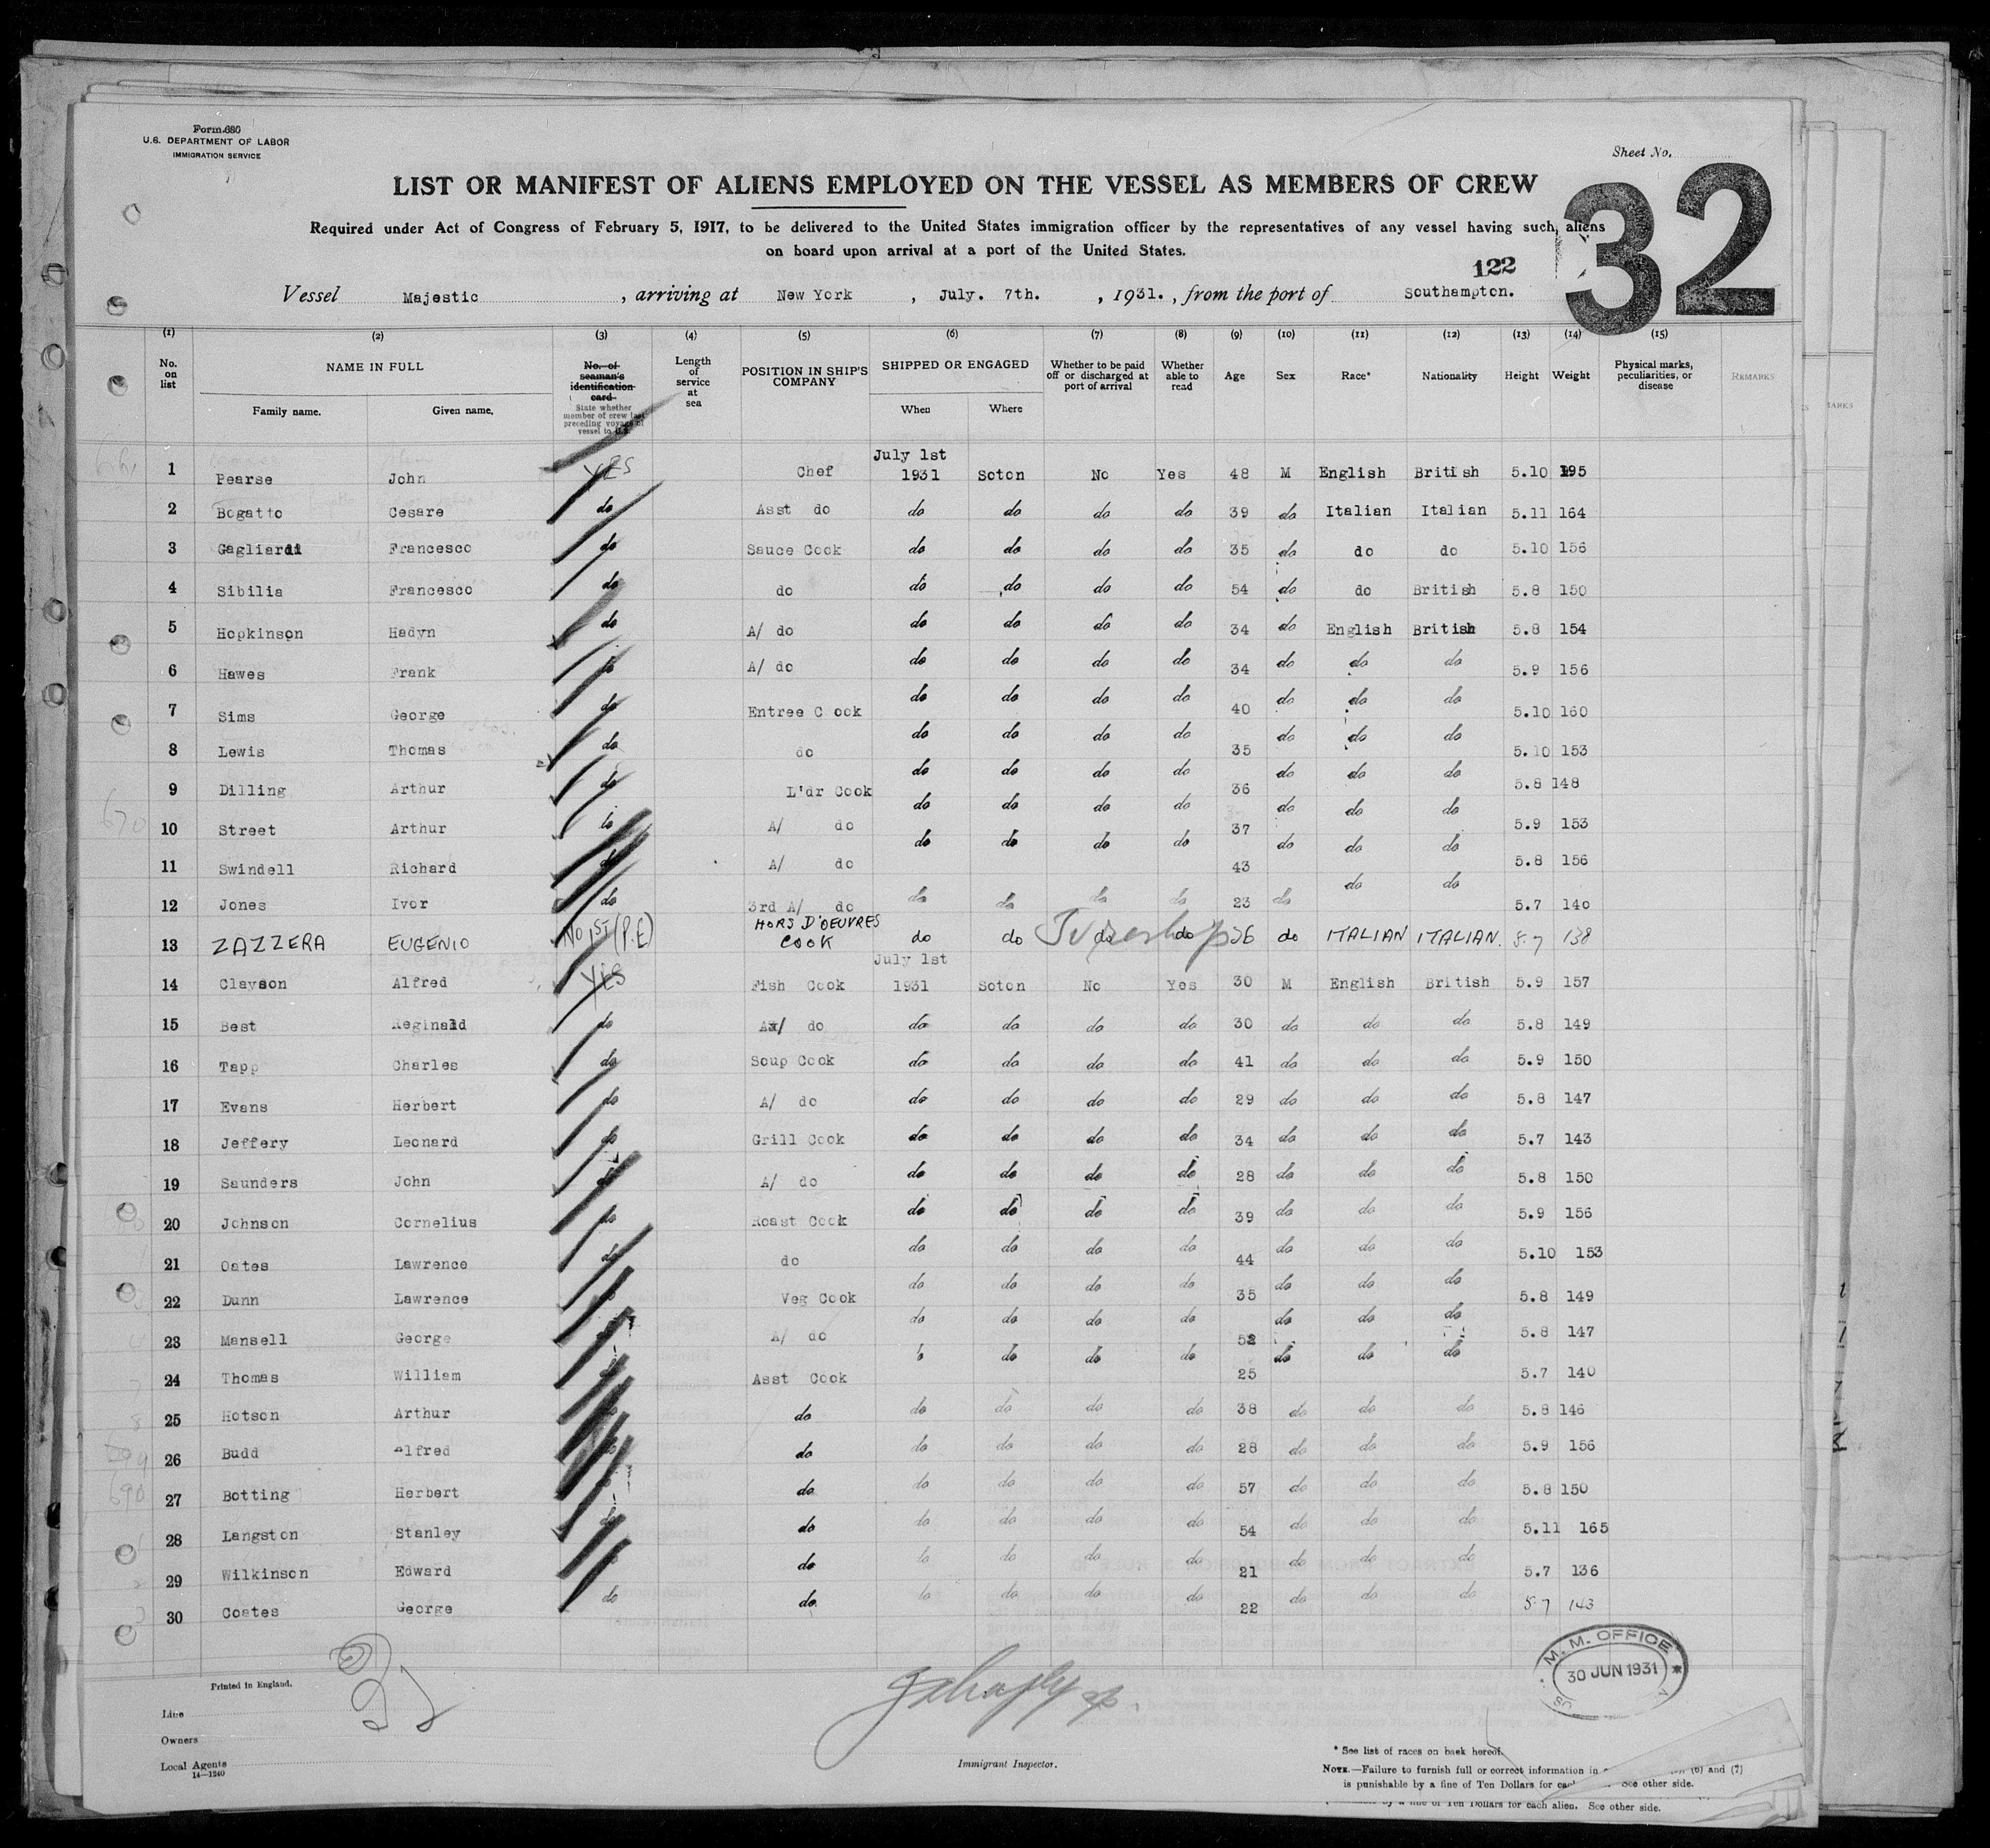 Form 680
U.S. DEPARTMENT OF LABOR
IMMIGRATION SERVICE
Sheet No.
32
LIST OR MANIFEST OF ALIENS EMPLOYED ON THE VESSEL AS MEMBERS OF CREW
Required under Act of Congress of February 5, 1917, to be delivered to the United States immigration officer by the representatives of any vessel having such aliens
on board upon arrival at a port of the United States.
122
Vessel Majestic , arriving at New York , July. 7th. , 1931. , from the port of Southampton.
(1) (2) (3) (4) (5) (6) (7) (8) (9) (10) (11) (12) (13) (14) (15)
No. on list NAME IN FULL Family name. Given name. No. of seaman's identification card State whether member of crew last preceding voyage of vessel to U.S. Length of service at sea POSITION IN SHIP'S COMPANY SHIPPED OR ENGAGED When Where Whether to be paid off or discharged at port of arrival Whether able to read Age Sex Race* Nationality Height Weight Physical marks, peculiarities, or disease REMARKS
1 Pearse John YES Chef July 1st 1931 Soton No Yes 48 M English British 5.10 195
2 Bogatto Cesare do Asst do do do do do 39 do Italian Italian 5.11 164
3 Gagliardi Francesco do Sauce Cook do do do do 35 do do do 5.10 156
4 Sibilia Francesco do do do do do do 54 do do British 5.8 150
5 Hopkinson Hadyn do A/ do do do do do 34 do English British 5.8 154
6 Hawes Frank do A/ do do do do do 34 do do do 5.9 156
7 Sims George do Entree C ook do do do do 40 do do do 5.10 160
8 Lewis Thomas do do do do do do 35 do do do 5.10 153
9 Dilling Arthur do L'dr Cook do do do do 36 do do do 5.8 148
10 Street Arthur do A/ do do do do do 37 do do do 5.9 153
11 Swindell Richard do A/ do do do do do 43 do do do 5.8 156
12 Jones Ivor do 3rd A/ do do do do do 23 do do do 5.7 140
13 ZAZZERA EUGENIO No 1st (P.E) HORS D'OEUVRES COOK do do do do 26 do ITALIAN ITALIAN. 5.7 138
14 Clayson Alfred YES Fish Cook July 1st 1931 Soton No Yes 30 M English British 5.9 157
15 Best Reginald do A/ do do do do do 30 do do do 5.8 149
16 Tapp Charles do Soup Cook do do do do 41 do do do 5.9 150
17 Evans Herbert do A/ do do do do do 29 do do do 5.8 147
18 Jeffery Leonard do Grill Cook do do do do 34 do do do 5.7 143
19 Saunders John do A/ do do do do do 28 do do do 5.8 150
20 Johnson Cornelius do Roast Cook do do do do 39 do do do 5.9 156
21 Oates Lawrence do do do do do do 44 do do do 5.10 153
22 Dunn Lawrence Veg Cook do do do do 35 do do do 5.8 149
23 Mansell George A/ do do do do do 52 do do do 5.8 147
24 Thomas William Asst Cook do do do 25 do do do 5.7 140
25 Hotson Arthur do do do do do 38 do do do 5.8 146
26 Budd Alfred do do do do do 28 do do do 5.9 156
27 Botting Herbert do do do do do 57 do do do 5.8 150
28 Langston Stanley do do do do do do 54 do do do 5.11 165
29 Wilkinson Edward do do do do do 21 do do do 5.7 136
30 Coates George do do do do do do 22 do do do 5.7 143
M. M. OFFICE
30 JUN 1931
Printed in England.
Line
Owners
Local Agents
14—1240
Immigrant Inspector.
* See list of races on back hereof.
NOTE.—Failure to furnish full or correct information in (6) and (7)
is punishable by a fine of Ten Dollars for each See other side.
by a fine of Ten Dollars for each alien. See other side.